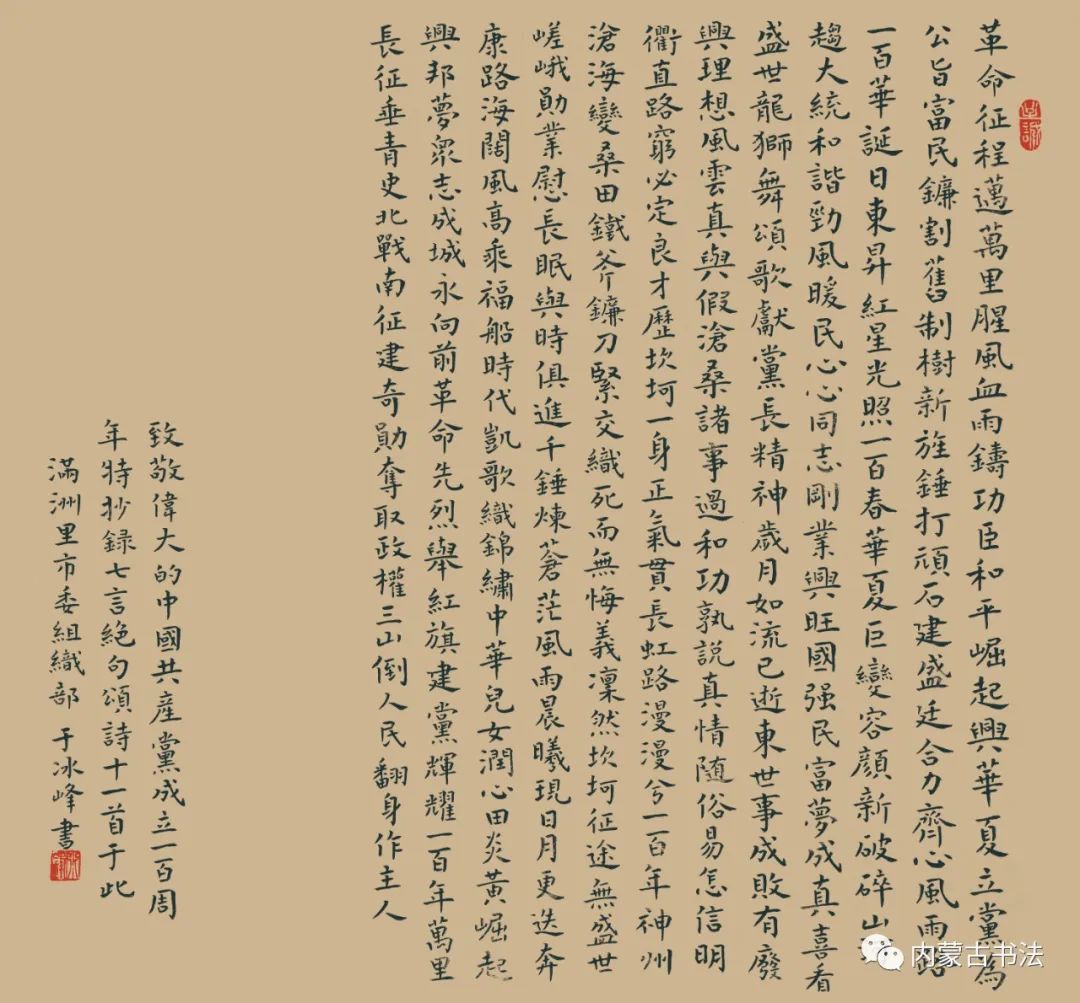 革命征程邁萬里腥風血雨鑄功臣和平崛起興華夏立黨為
公旨富民鐮割舊制樹新旌錘打頑石建盛廷合力齊心風雨路
一百華誕日東昇紅星光照一百春華夏巨變容顏新破碎山
趨大統和諧勁風暖民心心同志剛業興旺國强民富夢成真喜看
盛世龍獅舞頌歌獻黨長精神歲月如流已逝東世事成敗有廢
興理想風雲真與假滄桑諸事過和功孰説真情随俗易怎信明
衢直路窮必定良才歷坎坷一身正氣貫長虹路漫漫兮一百年神州
滄海變桑田鐵斧鐮刀緊交織死而無悔義凜然坎坷征途無盛世
嵯峨勛業慰長眠與時俱進千錘煉蒼茫風雨晨曦現日月更迭奔
康路海闊風高乘福船時代凱歌織錦繡中華兒女潤心田炎黃崛起
興邦夢眾志成城永向前革命先烈舉紅旗建黨輝耀一百年萬里
長征垂青史北戰南征建奇勛奪取政權三山倒人民翻身作主人
致敬偉大的中國共産黨成立一百周
年特抄録七言絶句頌詩十一首于此
滿洲里市委組織部 于冰峰書
内蒙古书法